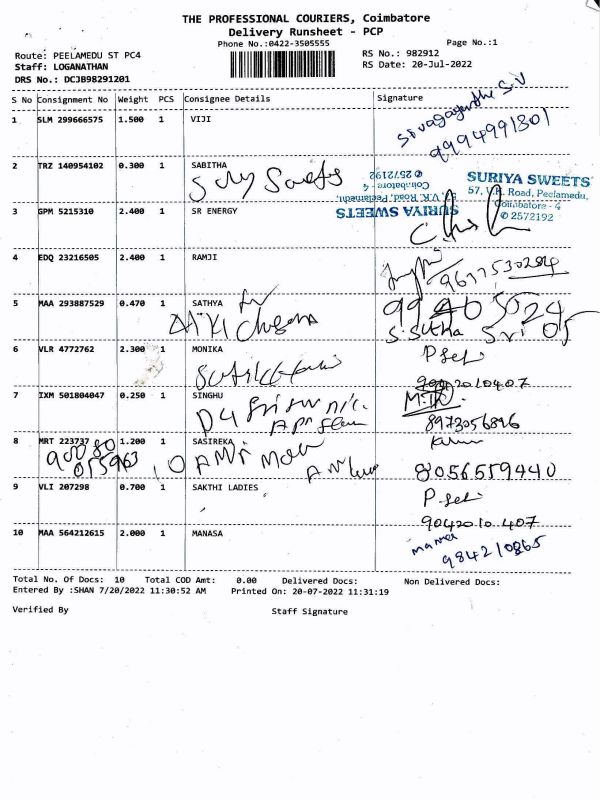 THE PROFESSIONAL COURIERS, Coimbatore
Delivery Runsheet - PCP
Phone No.:0422-3505555
Page No.:1
Route: PEELAMEDU ST PC4
RS No.: 982912
Staff: LOGANATHAN
RS Date: 20-Jul-2022
DRS No.: DCJB98291201
S No Consignment No Weight PCS Consignee Details Signature
1 SLM 299666575 1.500 1 VIJI
9994991301
2 TRZ 140954102 0.300 1 SABITHA
SURIYA SWEETS
57, V.K. Road, Peelamedu,
Coimbatore - 4
✆ 2572192
SURIYA SWEETS
V.K. Road, Peelamedu,
Coimbatore - 4
✆ 2572192
3 GPM 5215310 2.400 1 SR ENERGY
4 EDQ 23216505 2.400 1 RAMJI
5 MAA 293887529 0.470 1 SATHYA
S. Sutha Sri
6 VLR 4772762 2.300 1 MONIKA
7 IXM 501804047 0.250 1 SINGHU
8973056896
8 MRT 223737 1.200 1 SASIREKA
8056559440
9 VLI 207298 0.700 1 SAKTHI LADIES
9042010407
10 MAA 564212615 2.000 1 MANASA
Total No. Of Docs: 10 Total COD Amt: 0.00 Delivered Docs: Non Delivered Docs:
Entered By :SHAN 7/20/2022 11:30:52 AM Printed On: 20-07-2022 11:31:19
Verified By Staff Signature